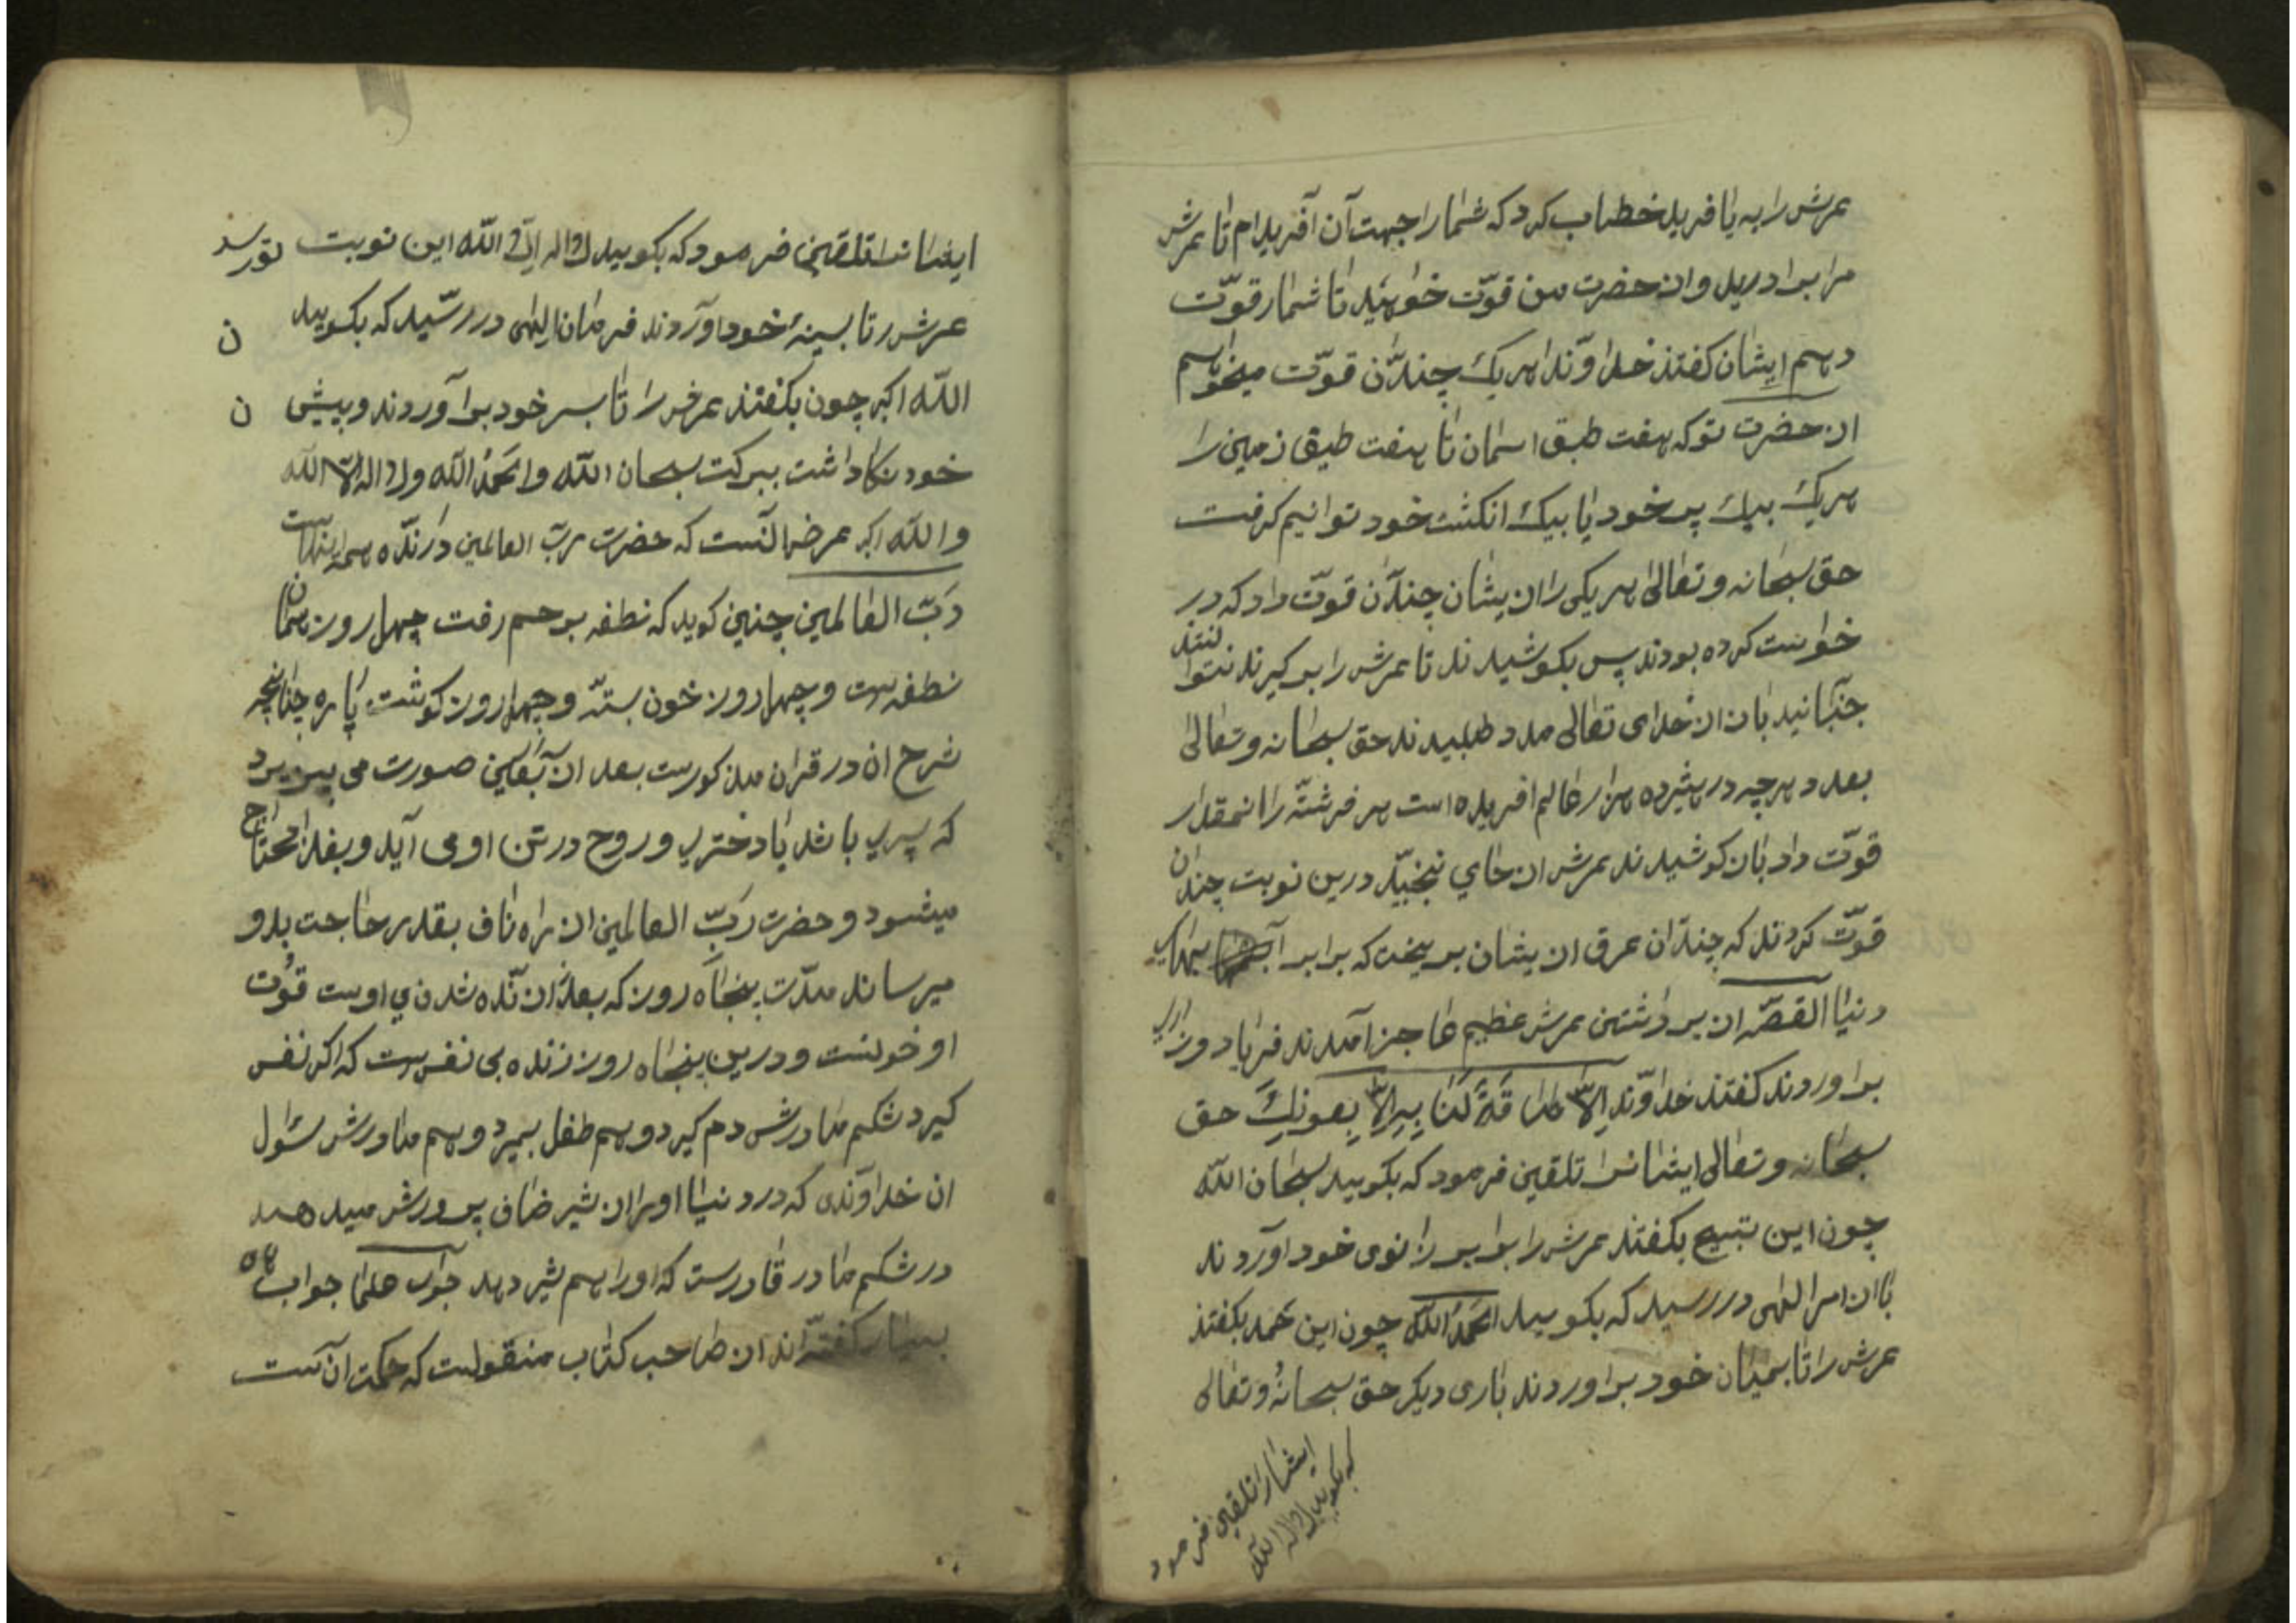 عرش را به یافرید خطاب کرد که شما را جهت آن آفریدام تا عرش
مرا بردارید و از حضرت من قوّت خواهید تا شما را قوّت
دهم ایشان کفتند خداوندا هریک چندان قوّت میخواهیم
از حضرت تو که هفت طبق اسمان تا هفت طبق زمین را
هریک بیک پر خود یا بیک انکشت خود توانیم کرفت
حق سبحانه و تعالی هریکی را ازیشان چندان قوّت داد که در
خواست کرده بودند پس بکوشیدند تا عرش را برکیرند نتوانستند
جنبانید باز از خدای تعالی مدد طلبیدند حق سبحانه و تعالی
بعدد هرچه در هژده هزار عالم افریده است هر فرشته را انمقدار
قوّت داد باز کوشیدند عرش از جای نجنبید درین نوبت چندان
قوّت کردند که چندان عرق ازیشان بریخت که برابر آبهای
دنیا القصّه از برداشتن عرش عظیم عاجز آمدند فریاد و زاری
براوردند کفتند خداوندا لا طاقة لنا به الا بعونک حق
سبحانه و تعالی ایشانرا تلقین فرمود که بکویید سبحان الله
چون این تسبیح بکفتند عرش را برابر زانوی خود اوردند
باز امر الهی در رسید که بکویید الحمد الله چون این حمد بکفتند
عرش را تا بمیان خود براوردند باری دیکر حق سبحانه و تعالی
ایشانرا تلقین فرمود
که بکویید لا اله الا الله
ایشانرا تلقین فرمود که بکویید لا اله الا الله این نوبت
عرش را تا بسینهٔ خود اوردند فرمان الهی در رسید که بکویید ن
الله اکبر چون بکفتند عرش را تا بسر خود برآوردند و بیش ن
خود نکاداشت ببرکت سبحان الله والحمد الله ولا اله الا الله
والله اکبر عرض آنست که حضرت ربّ العالمین دارنده همه اینهاست
ربّ العالمین چنین کوید که نطفه برحم رفت چهل روز همان
نطفه ست و چهل روز خون بسته و چهل روز کوشت پاره چنانچه
شرح ان در قران مذکورست بعد از صورت می پذیرد
که پسری باشد یا دختری و روح در تن او می آید و بغذا محتاج
میشود و حضرت ربّ العالمین از راه ناف بقدر حاجت بدو
میرساند مدّت پنجاه روز که بعد از زنده شدن ی اوست قوت
او خونست و درین پنجاه روز زنده بی نفس ست که اکر نفس
کیرد شکم مادرش دم کیرد و هم طفل بمیرد و هم مادرش سئول
ان خداوندی که در دنیا او را از شیر صاف پرورش میدهد
در شکم مادر قادرست که او را هم شیر دهد جواب علما جواب
بسیار کفته اند از صاحب کتاب منقولست که حکمت ان آنست